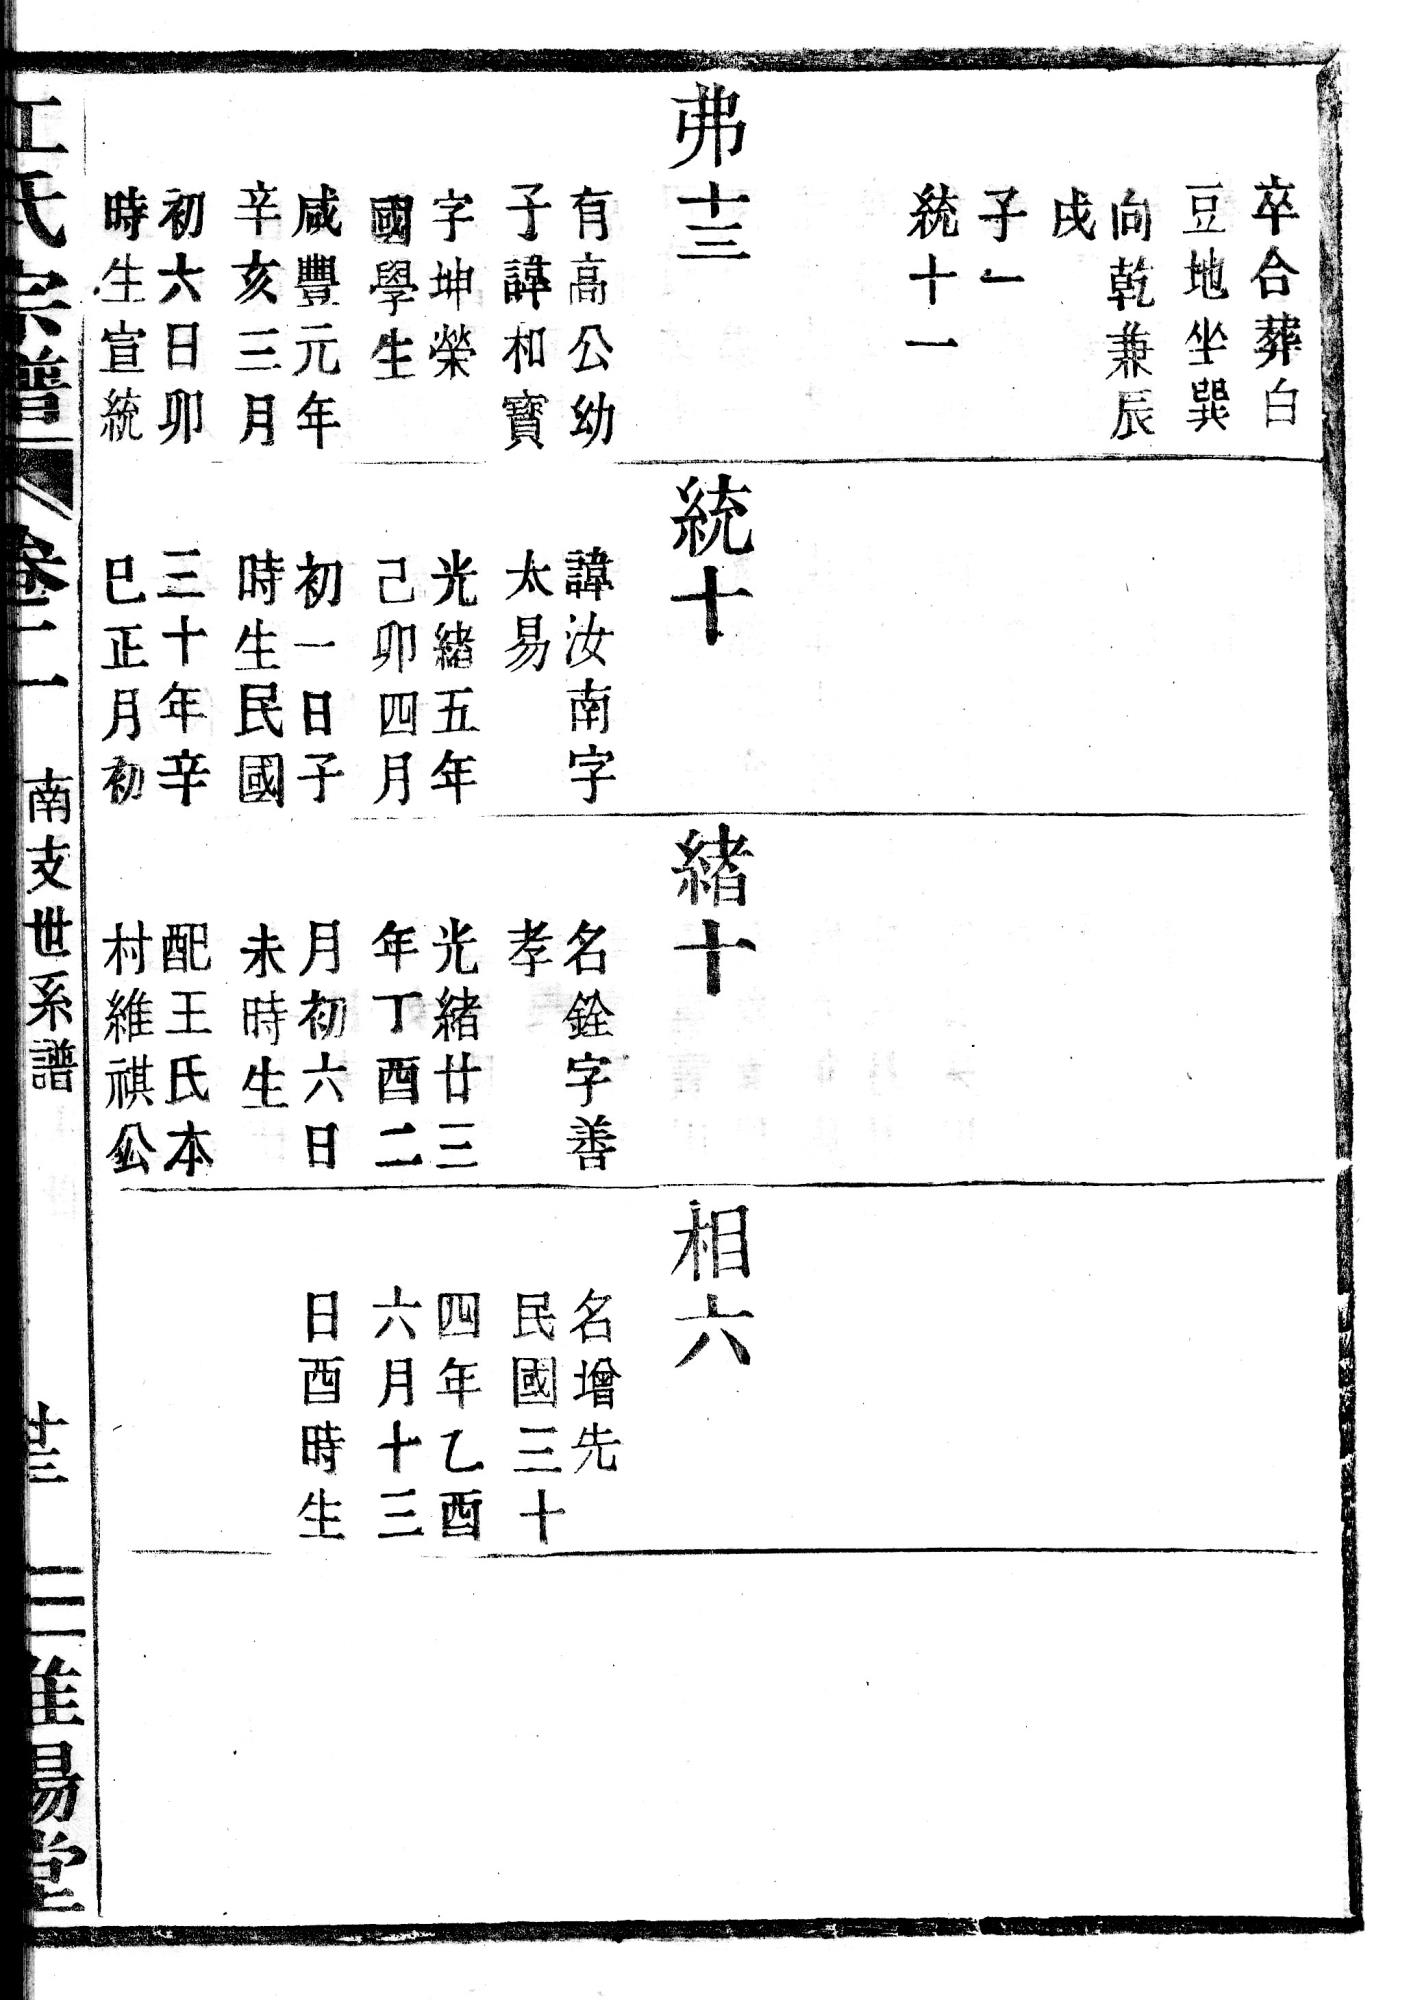 卒合葬白
豆地坐巽
向乾兼辰
戌
子一
統十一
弗十三
有高公幼
子諱和寶
字坤榮
國學生
咸豐元年
辛亥三月
初六日卯
時生宣統
統十
諱汝南字
太易
光緒五年
己卯四月
初一日子
時生民國
三十年辛
巳正月初
緒十
名銓字善
孝
光緒廿三
年丁酉二
月初六日
未時生
配王氏本
村維祺公
相六
名增先
民國三十
四年乙酉
六月十三
日酉時生
江氏宗譜
卷十一
南支世系譜
廿三
淮陽堂